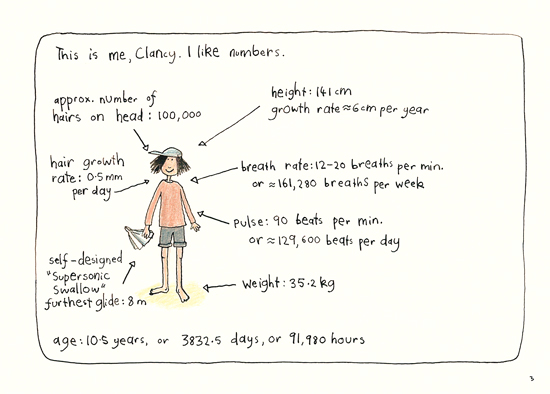 This is me, Clancy. I like numbers.
approx. number of
hairs on head: 100,000
height: 141cm
growth rate ≈ 6cm per year
hair growth
rate: 0.5mm
per day
breath rate: 12-20 breaths per min.
or ≈ 161,280 breaths per week
pulse: 90 beats per min.
or ≈ 129,600 beats per day
self-designed
"Supersonic
Swallow"
furthest glide: 8m
weight: 35.2kg
age: 10.5 years, or 3832.5 days, or 91,980 hours
3